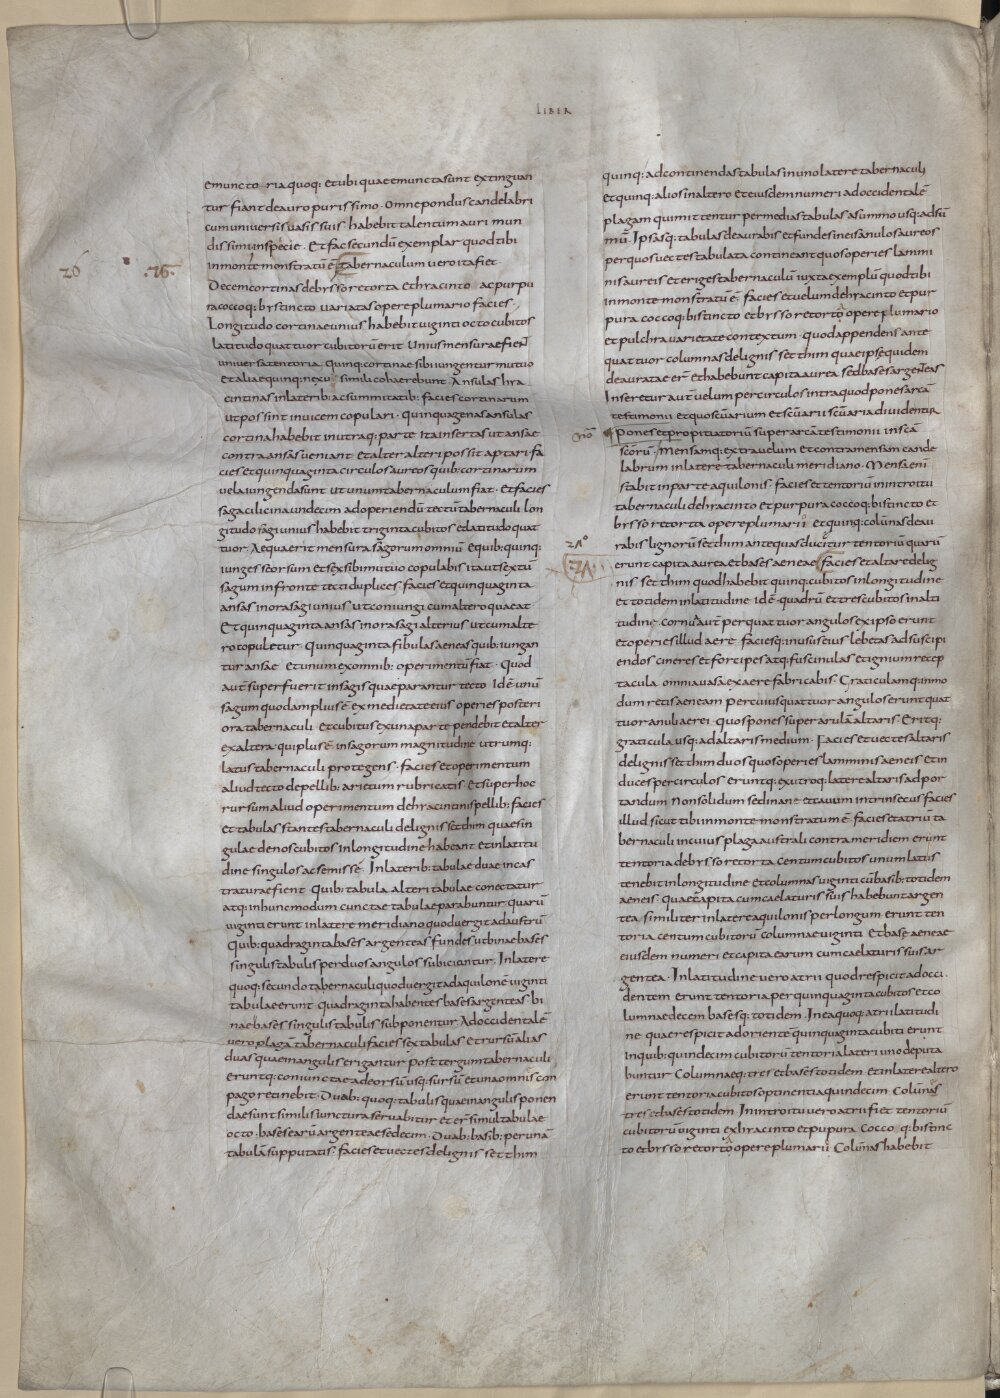 LIBER
emuncto ria quoq: et ubi quae emuncta sunt extinguan
tur fiant de auro purissimo. Omne pondus candelabri
cum universis vasis suis habebit talentum auri mun
dissimi inspecie. Et fac secundū exemplar quod tibi
in monte monstratū ē tabernaculum vero ita fiet.
26 .26.
Decem cortinas de bysso retorta et hyacincto ac purpu
ra coccoq: bystincto variatas opere plumario facies.
Longitudo cortinae unius habebit viginti octo cubitos
latitudo quattuor cubitorū erit Unius mensurae fient
universa tentoria. Quinq: cortinae sibi iungentur mutuo
et aliae quinq: nexu simili cohaerebunt. Ansulas hya
cintinas in laterib: ac summitatib: facies cortinarum
ut possint invicem copulari. Quinquagenas ansulas
cortina habebit in utraq: parte Ita insertas ut ansae
contra ansas veniant et altera alteri possit aptari. fa
cies et quinquaginta circulos aureos quib: cortinarum
vela iungenda sunt ut unum tabernaculum fiat. Et facies
saga cilicina undecim ad operiendū tectū tabernaculi lon
gitudo sagi unius habebit triginta cubitos et latitudo quat
tuor. Aequa erit mensura sagorum omniū E quib: quinq:
iunges seorsum et sex sibi mutuo copulabis ita ut sextū
sagum in fronte tecti duplices. facies et quinquaginta
ansas in ora sagi unius ut coniungi cum altero queat
Et quinquaginta ansas in ora sagi alterius ut cum alte
ro copuletur. Quinquaginta fibulas aeneas quib: iungan
tur ansae et unum ex omnib: operimentū fiat. Quod
autē superfuerit in sagis quae parantur tecto Id ē unū
sagum quod amplius ē ex medietate eius operies posteri
ora tabernaculi et cubitus ex una parte pendebit et alter
ex altera qui plus ē in sagorum magnitudine utrumq:
latus tabernaculi protegens. facies et operimentum
aliud tecto de pellib: arietum rubricatis. Et super hoc
rursum aliud operimentum de hyacintinis pellib: facies
et tabulas stantes tabernaculi de lignis setthim quae sin
gulae denos cubitos in longitudine habeant et in latitu
dine singulos ac semissē. In laterib: tabulae duae incas
traturae fient Quib: tabula alteri tabulae conectatur
atq: in hunc modum cunctae tabulae parabuntur quarū
viginti erunt in latere meridiano quod vergit ad austrū
Quib: quadraginta bases argenteas fundes ut binae bases
singulis tabulis per duos angulos subiciantur. In latere
quoq: secundo tabernaculi quod vergit ad aquilonē viginti
tabulae erunt quadraginta habentes bases argenteas. bi
nae bases singulis tabulis subponentur Ad occidentalē
vero plagā tabernaculi facies sex tabulas et rursū alias
duas quae in angulis erigantur post tergum tabernaculi
eruntq: coniunctae a deorsū usq: sursū et una omnis con
pago retinebit Duab: quoq: tabulis quae in angulis ponen
dae sunt similis iunctura servabitur et er simul tabulae
octo. bases earū argenteae sedecim. Duab: basib: per unā
tabulā supputatis. facies et vectes de lignis setthim
quinq: ad continendas tabulas in uno latere tabernaculi
et quinq: alios in altero et eiusdem numeri ad occidentalē
plagam qui mittentur per medias tabulas a summo usq: ad sū
mū. Ipsasq: tabulas deaurabis et fundes in eis anulos aureos
per quos vectes tabulata contineant quos operies lammi
nis aureis et eriges tabernaculū iuxta exemplū quod tibi
in monte monstratū ē. facies et velum de hyacinto et pur
pura coccoq: bistincto et bysso retorto opere plumario
et pulchra varietate contextum. quod appendens ante
quattuor columnas de lignis setthim quae ipse quidem
deauratae er̄ et habebunt capita aurea sed bases argenteas
Inseretur aut̄ velum per circulos intra quod pones arcā
testimonii et quo sc̄uarium et sc̄uarii sc̄uaria dividentur
nō Pones et propitiatoriū super arcā testimonii in sc̄ā
sc̄orū. Mensamq: extra velum et contra mensam cande
labrum in latere tabernaculi meridiano. Mensa enī
stabit in parte aquilonis. facies et tentoriū in introitu
tabernaculi de hyacinto et purpura coccoq: bistincto et
bysso retorta opere plumarii. et quinq: colūnas deau
rabis lignorū setthim ante quas ducitur tentoriū quarū
erunt capita aurea et bases aeneae facies et altare de lig
nis setthim quod habebit quinq: cubitos in longitudine
et totidem in latitudine Id ē quadrū et tres cubitos in alti
tudine. Cornu aut̄ per quattuor angulos ex ipso erunt
et operies illud aere faciesq: in usus eius lebetas ad suscipi
endos cineres et forcipes atq: fuscinulas et ignium recep
tacula omnia vasa ex aere fabricabis. Craticulamq: in mo
dum retis aeneam per cuius quattuor angulos erunt quat
tuor anuli aerei. quos pones super arulā altaris. Eritq:
graticula usq: ad altaris medium. Facies et vectes altaris
de lignis setthim duos quos operies lamminis aeneis et in
duces per circulos eruntq: ex utroq: latere altaris ad por
tandum Non solidum sed inane et cavum intrinsecus facies
illud sicut tibi in monte monstratum ē. facies et atriū ta
bernaculi in cuius plaga australi contra meridiem erunt
tentoria de bysso retorta centum cubitos unum latus
tenebit in longitudine et columnas viginti cū basib: totidem
aeneis. quae capita cum caelaturis suis habebunt argen
tea similiter in latere aquilonis per longum erunt ten
toria centum cubitorū columnae viginti Et base aeneae
eiusdem numeri et capita earum cum caelaturis suis ar
gentea. In latitudine vero atrii quod respicit ad occi
dentem erunt tentoria per quinquaginta cubitos et co
lumnae decem basesq: totidem. In ea quoq: atrii latitudi
ne quae respicit ad orientē quinquaginta cubiti erunt
In quib: quindecim cubitorū tentoria lateri uno deputa
buntur Columnaeq: tres et bases totidem et in latere altero
erunt tentoria cubitos optinentia quindecim. Colūnas
tres et bases totidem. In introitu vero atrii fiet tentoriū
cubitorū viginti ex hyacinto et pupura Cocco q: bistinc
to et bysso retorto opere plumarii Colūnas habebit